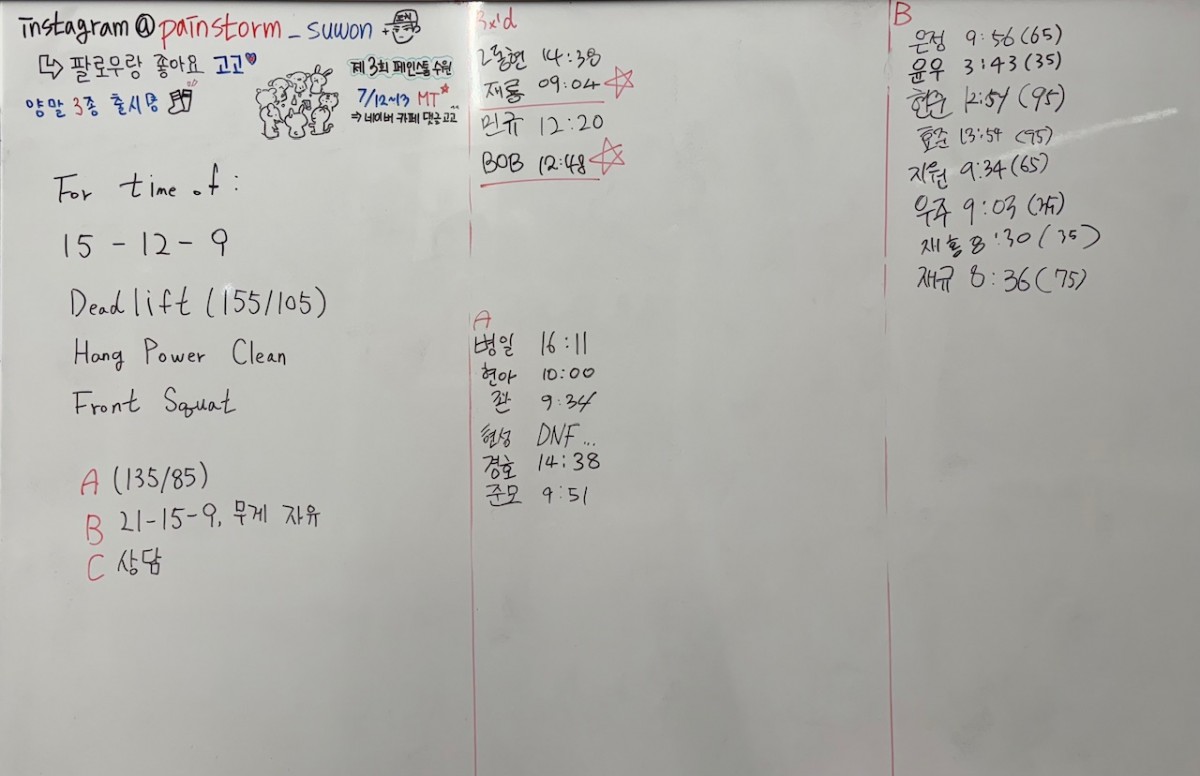 instagram @painstorm_suwon +
↳ 팔로우랑 좋아요 고고♥
양말 3종 출시
제3회 페인스톰 수원
7/12~13 MT
⇒ 네이버 카페 댓글 고고
For time of :
15 - 12 - 9
Deadlift (155/105)
Hang Power Clean
Front Squat
A (135/85)
B 21-15-9, 무게 자유
C 상담
Rx'd
14:38
재룡 09:04 ☆
민규 12:20
BOB 12:48 ☆
A
병일 16:11
현아 10:00
관 9:34
현성 DNF...
경호 14:38
준모 9:51
B
은정 9:56 (65)
윤우 3:43 (35)
현준 12:57 (95)
효준 13:54 (95)
지원 9:34 (65)
우주 9:03
재홍 8:30 (35)
재규 8:36 (75)